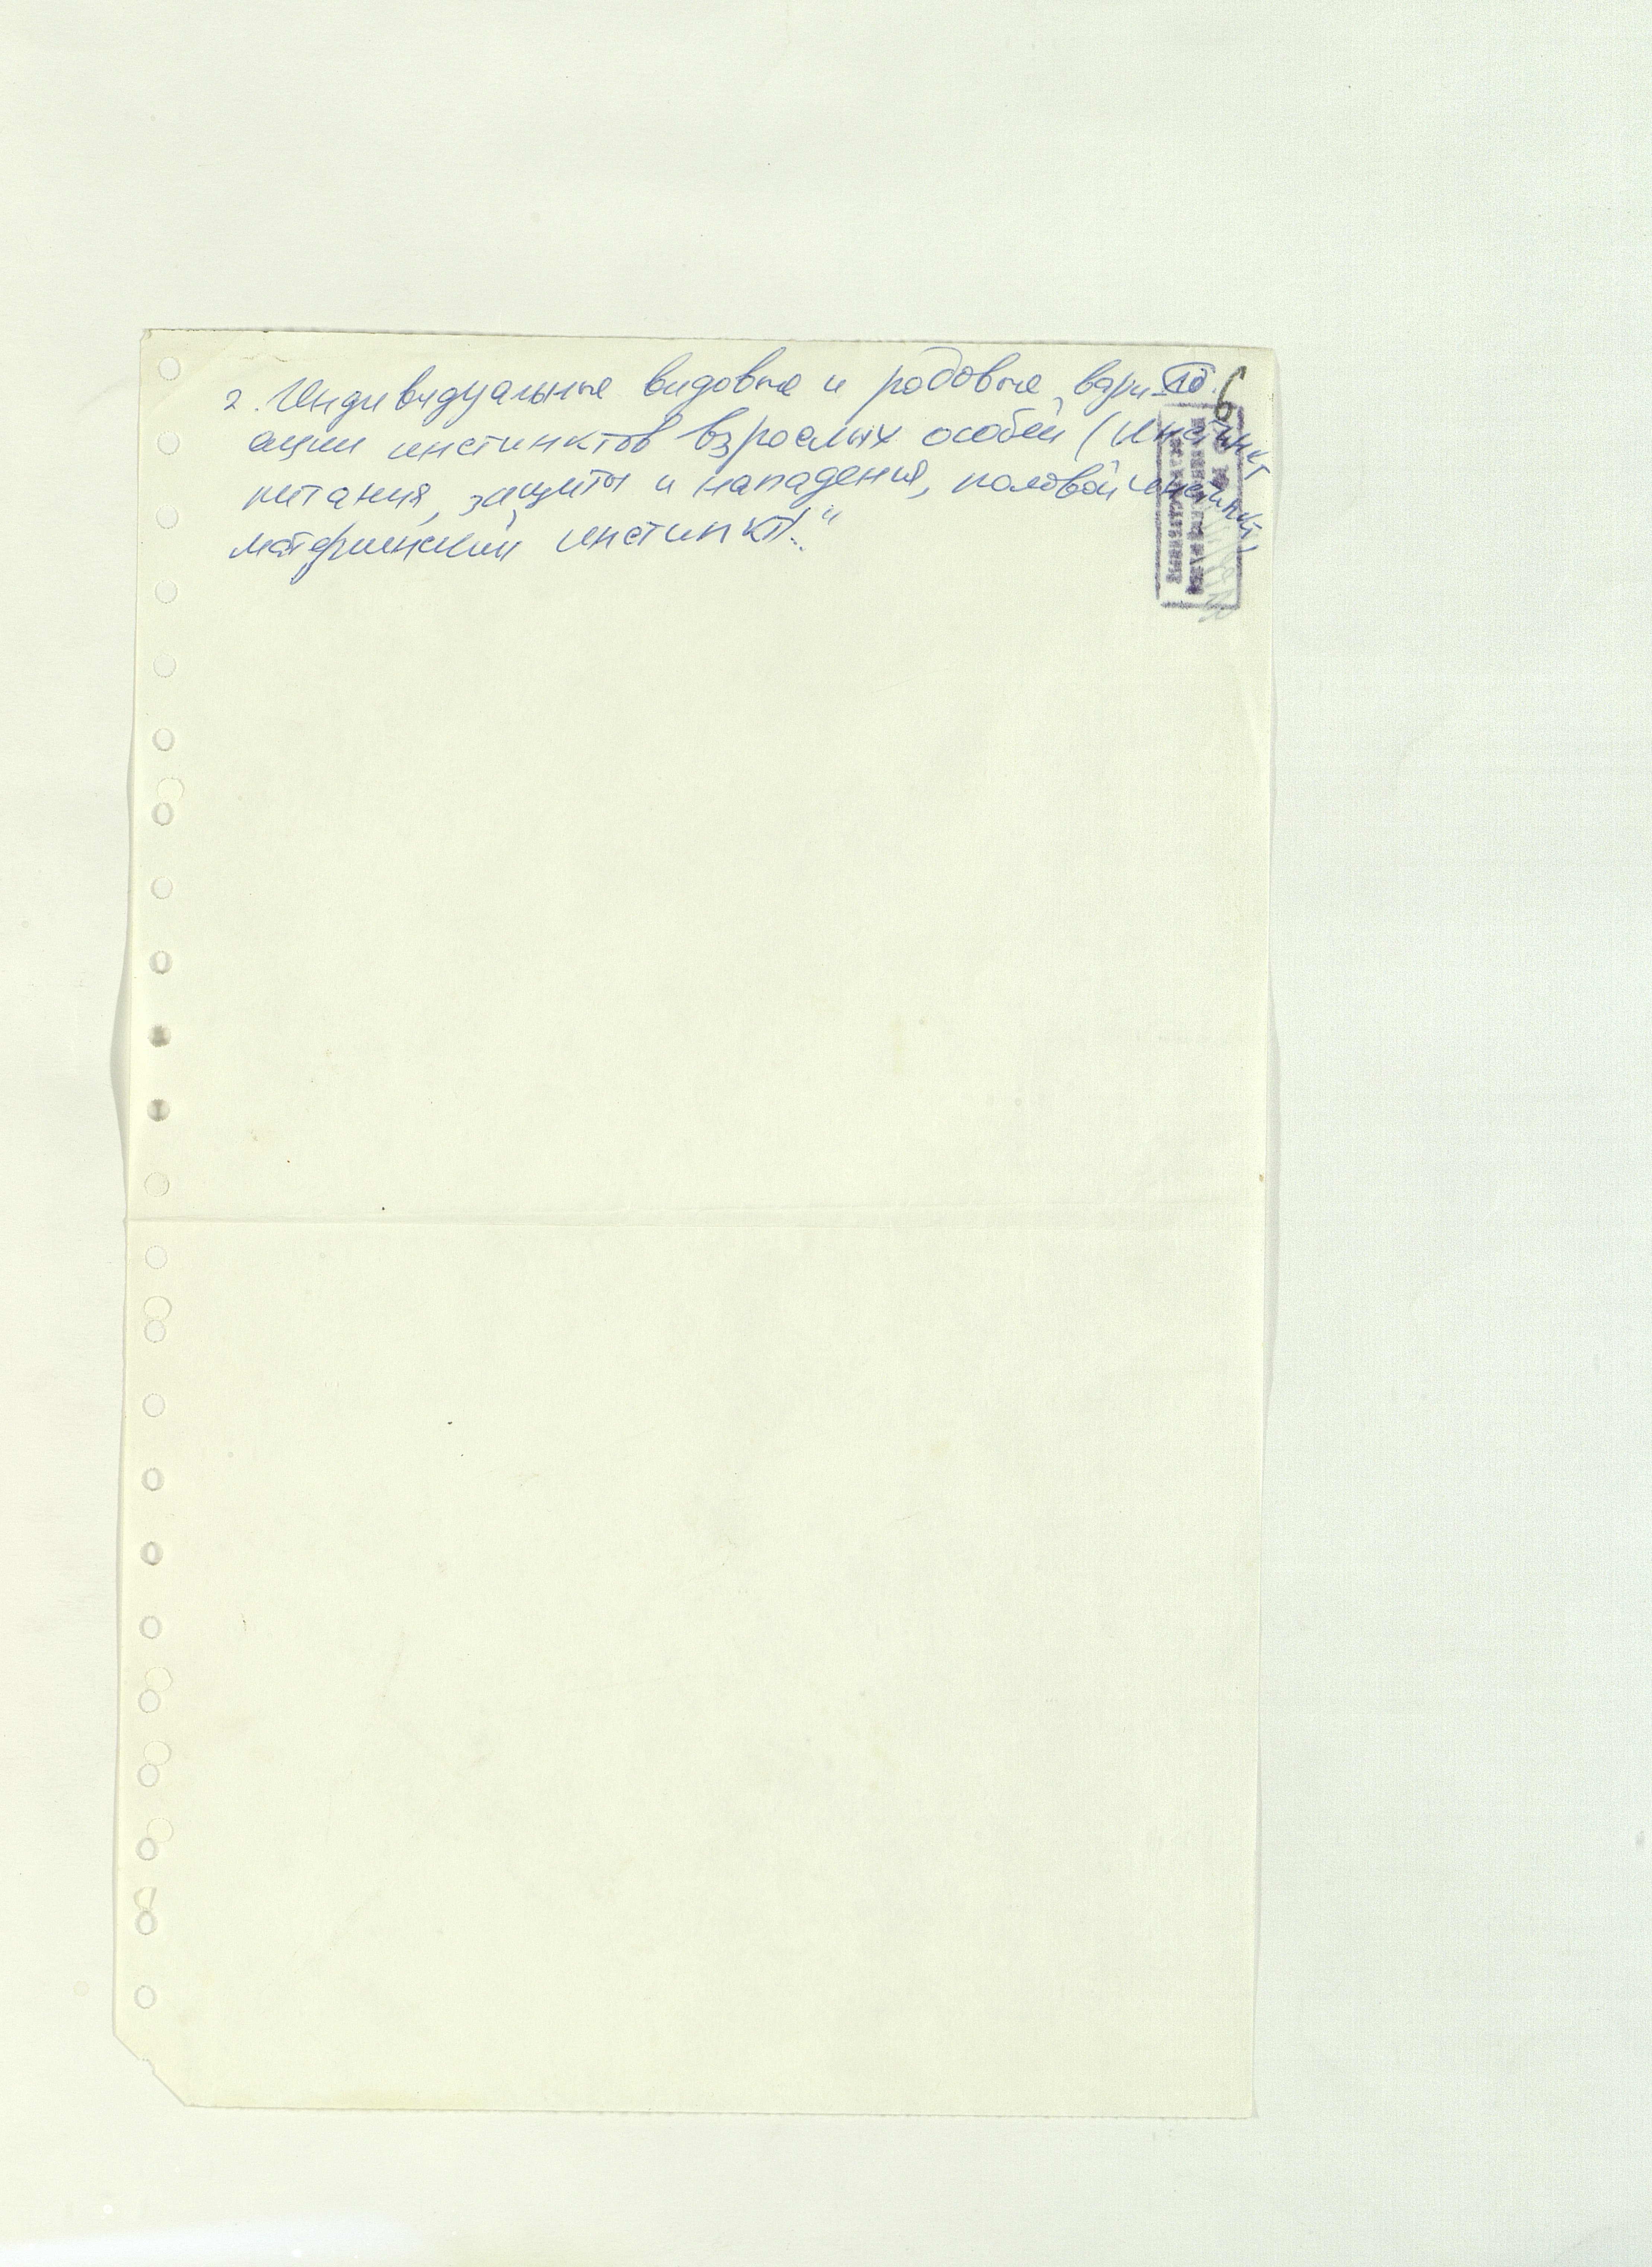 10.
6
2. Индивидуальные видовые и родовые вари-
ации инстинктов взрослых особей (инстинкт
питания, защиты и нападения, половой инстинкт,
материнский инстинкт)."